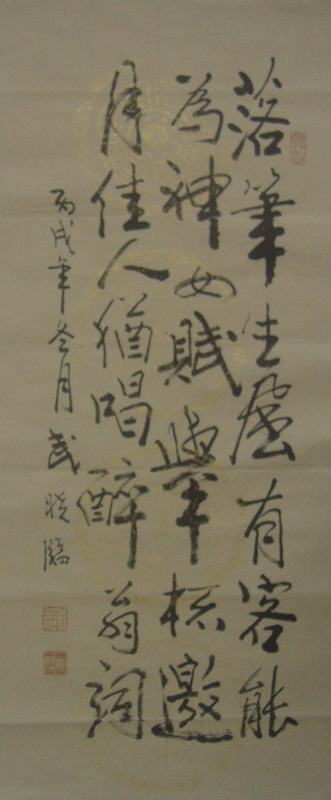 落筆生風有客能
為神女賦舉杯邀
月佳人猶唱醉翁詞
丙戌年冬月武晓